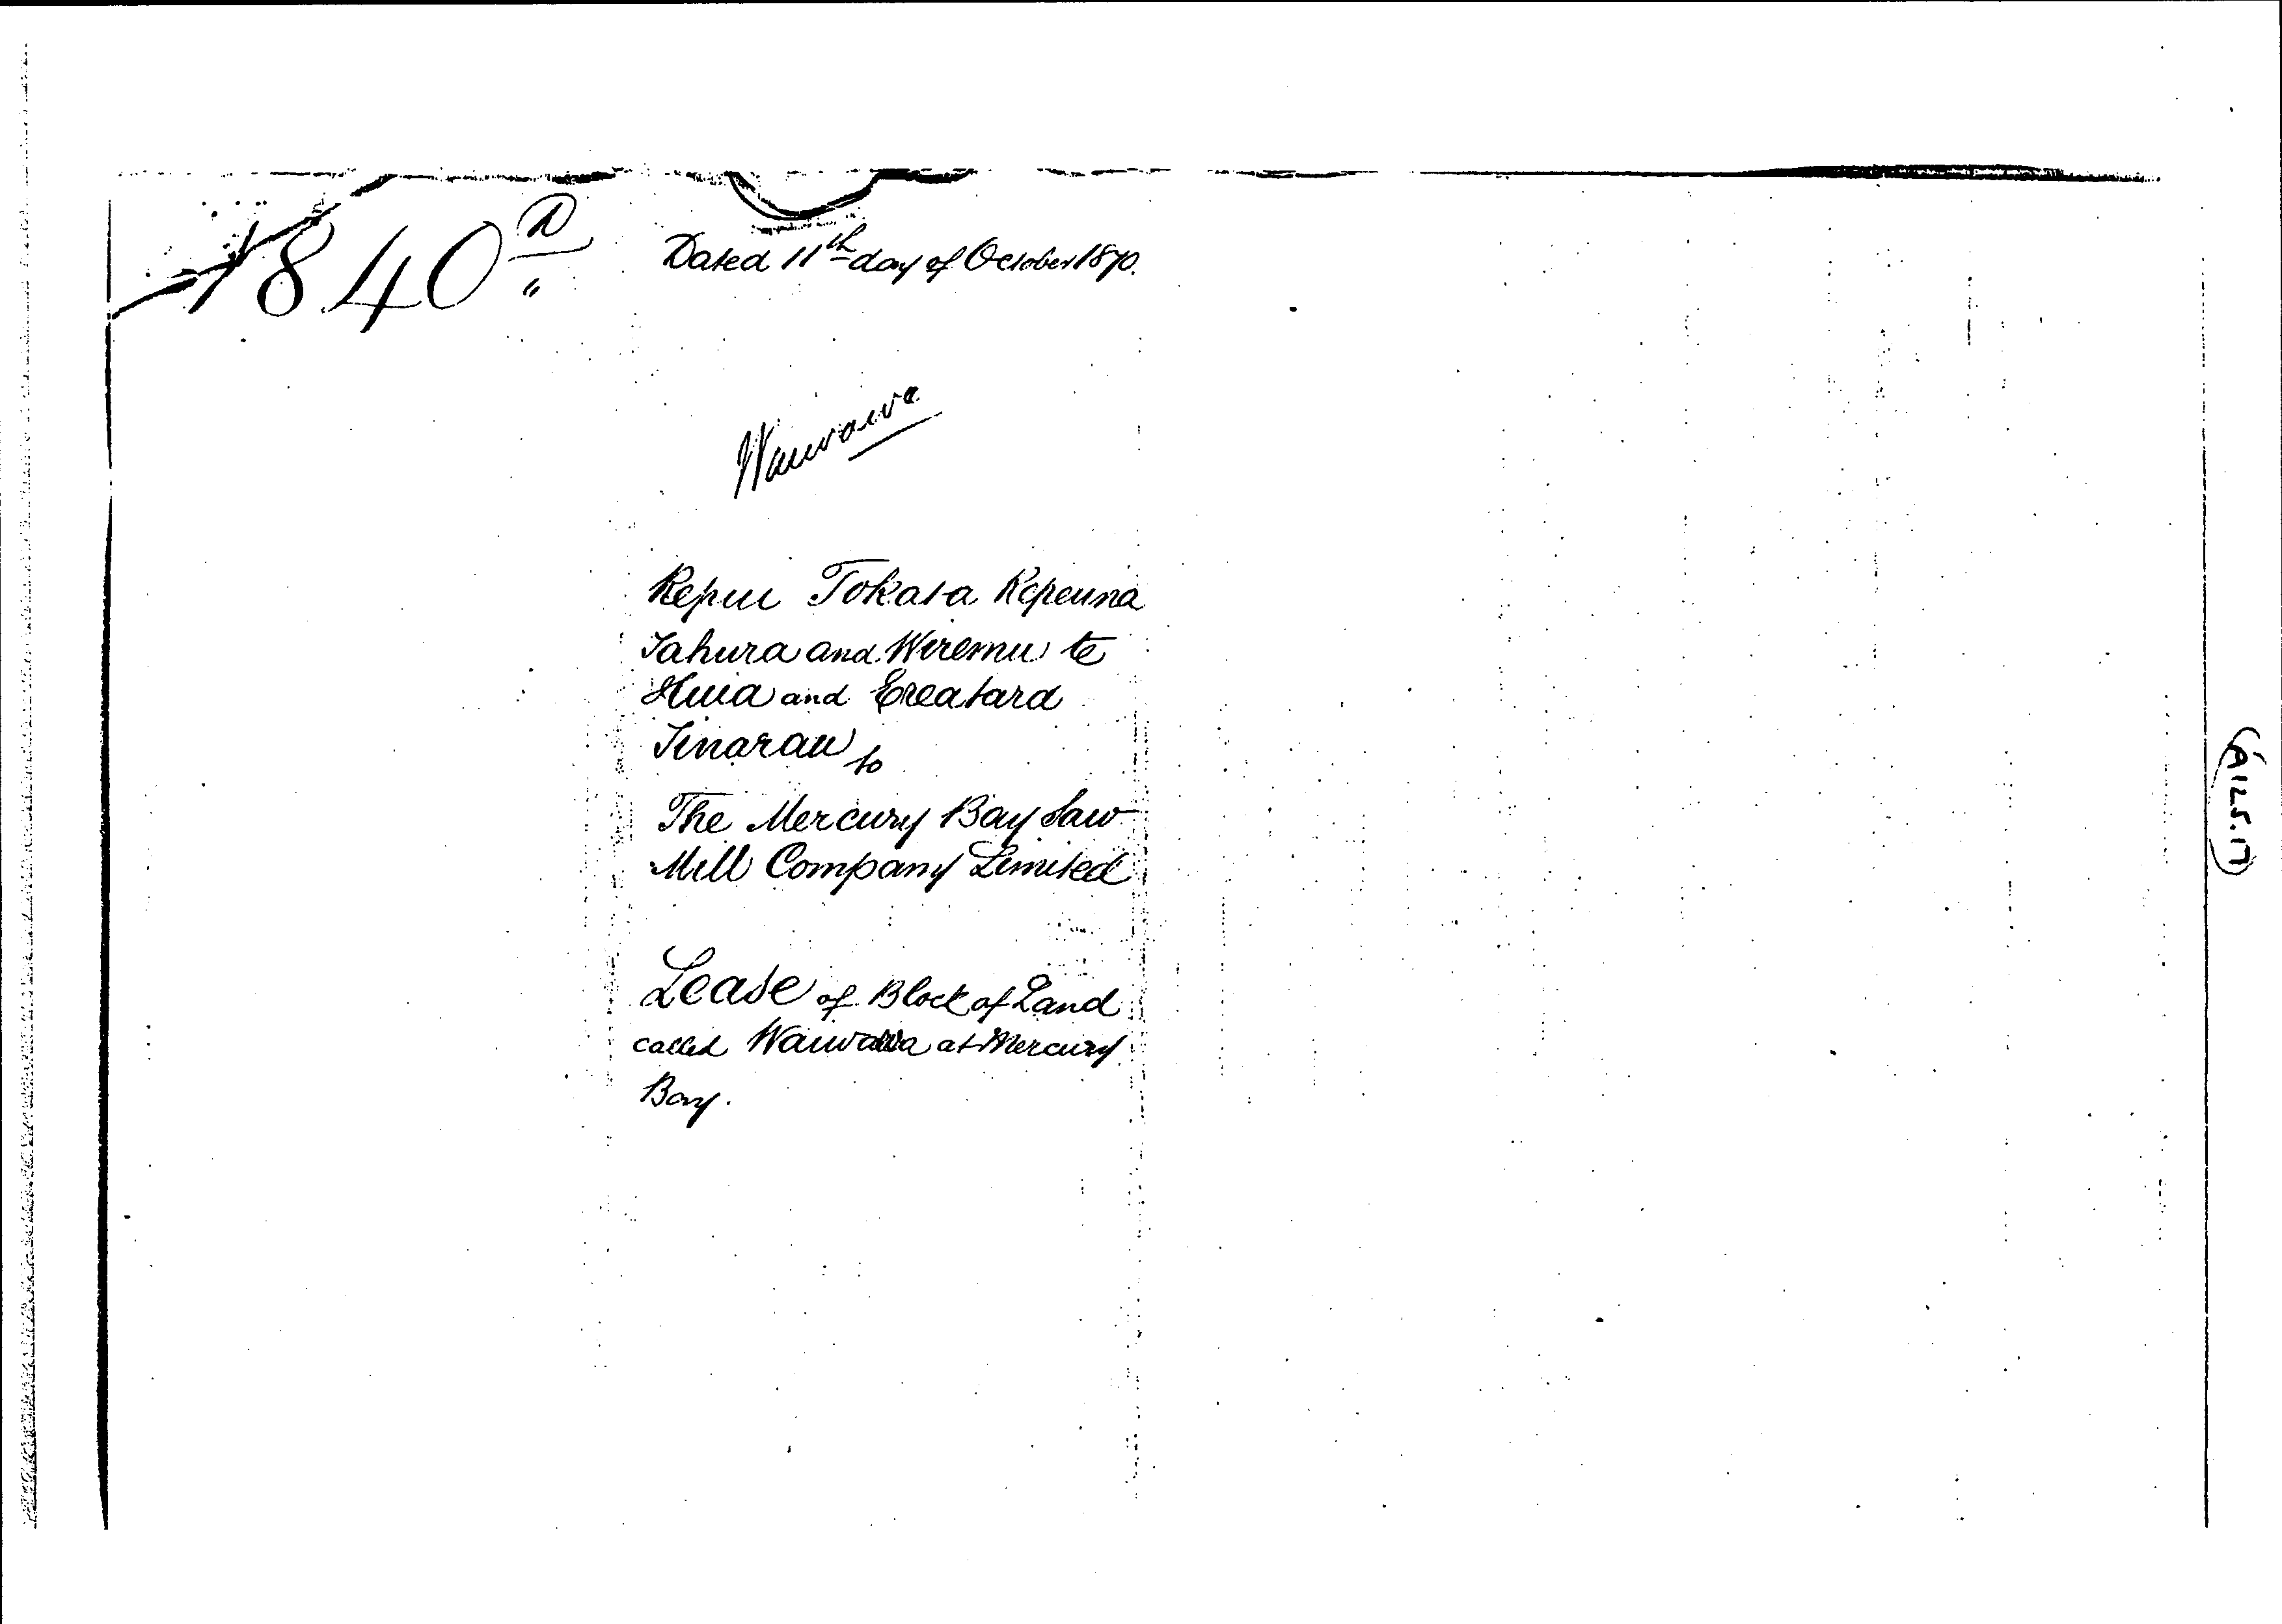 1840 D
"
Dated 11th day of October 1870.
Waiwawa
Repui Tokata Repeuna
Tahura and Wiremu te
Huia and Ereatara
Tinarau to
The Mercury Bay Saw
Mill Company Limited
Lease of Block of Land
called Waiwawa at Mercury
Bay.
(A125.17)